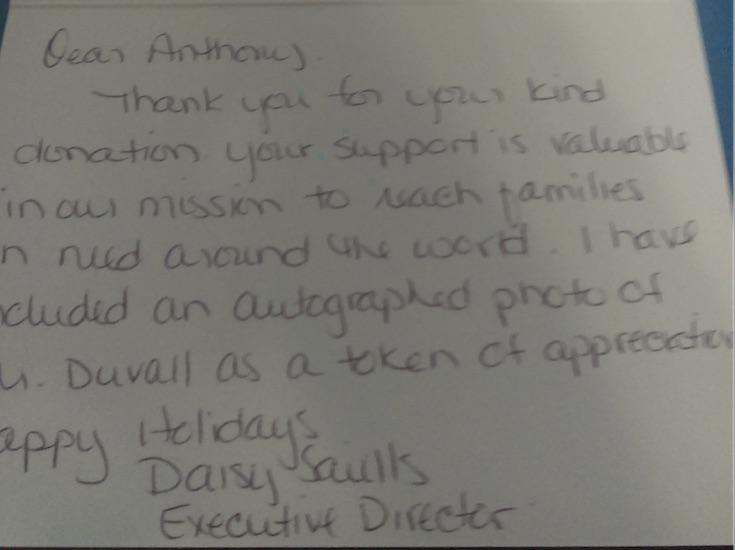 Dear Anthony.
Thank you for your kind
donation. your support is valuable
in our mission to reach families
n need around the world. I have
cluded an autographed photo of
. Duvall as a token of appreciation
appy Holidays
Daisy Saulls
Executive Director